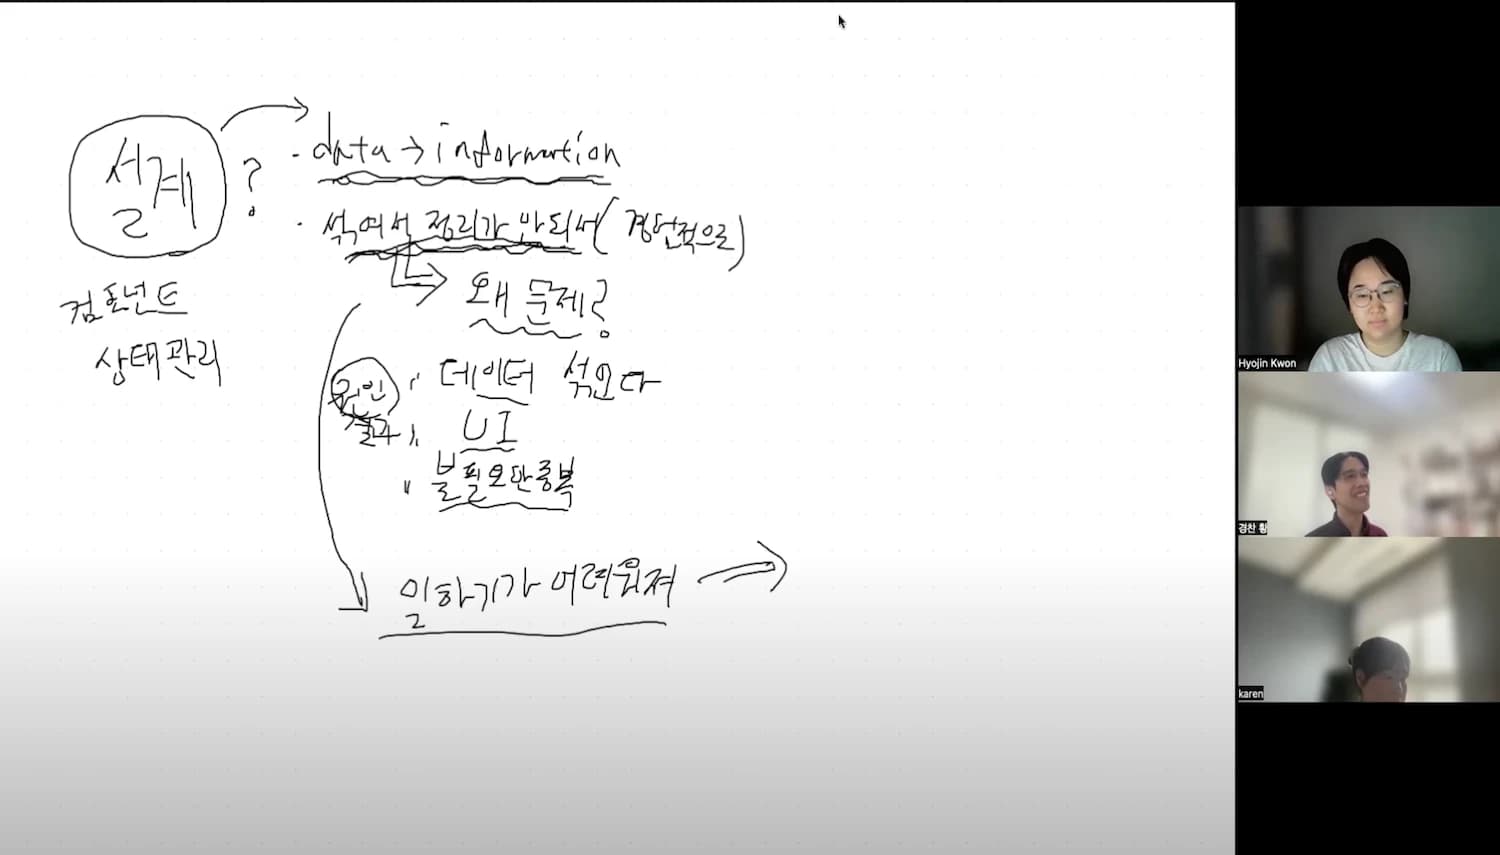 설계 ?
컴포넌트
상태관리
· data → information
· 섞여서 정리가 안되서 (경험적으로)
왜 문제?
원인 데이터 섞인다
결과 UI
불필요한 중복
일하기가 어려워져
Hyojin Kwon
경찬 황
karen